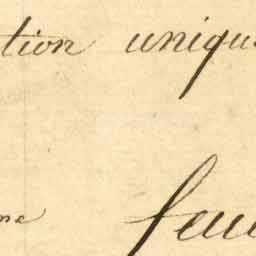 tion unique
ne feu